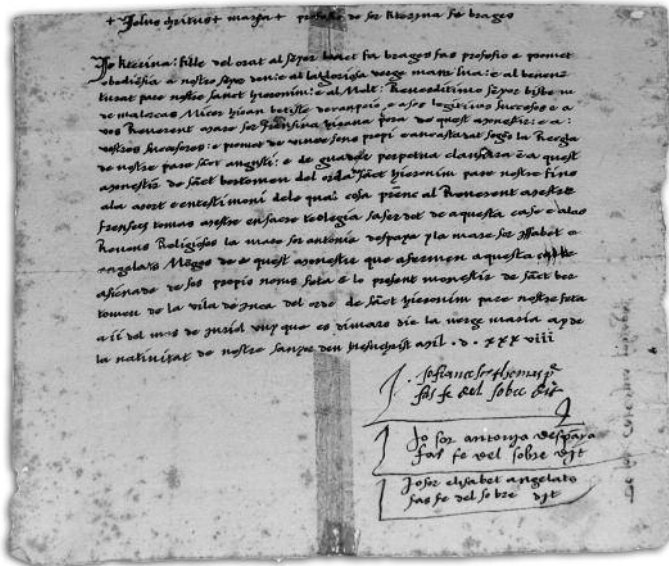 + Jesus christus + maria + professio de sor Kterina sa brages
Jo Kterina: fille del orat al senyor banet sa brages fas professio e promet
obediessia a nostro senyor deu: e al la gloriosa verge mare sua: e al benenz
turat pare nostre sanct hieronim: e al Molt: Reverenditimo senyor bisbe ne
de malorcas Micer Juan batiste e a sos legitims successos e a
vos Reverent mare sor priora de quest monestir: e a:
vostros successores: e promet de viure sens propi e an castatat segos la Regla
de nostre pare sanct angusti: e de guardar perpetua clausura en a quest
monestir de sanct bertomeu del orda sanct hieronim pare nostre fins
ala mort e en testimoni dela qual cosa prenc al Reverent mestre
frensesc tomas mestre en sacre teologia saserdot de aquesta casa e a las
Reverens Religioses la mare sor antonia despaya y la mare sor ysabet
angelats Monges de a quest monestir que afermen aquesta
asinade de sos propis noms feta e lo present monestir de sanct ber
tomeu de la vila de Inca del orde de sanct hieronim pare nostre feta
a ii del mes de Juriol vuy que es dimars die la verge maria any de
la nativitat de nostre sanyor deu Jhesuchrist mil . d . xxx viii
Jo frances thomas pr
fas fe del sobre dit
Jo sor antonia despaya
fas fe del sobre dit
Jo sor elisabet angelats
fas fe del so bre dit